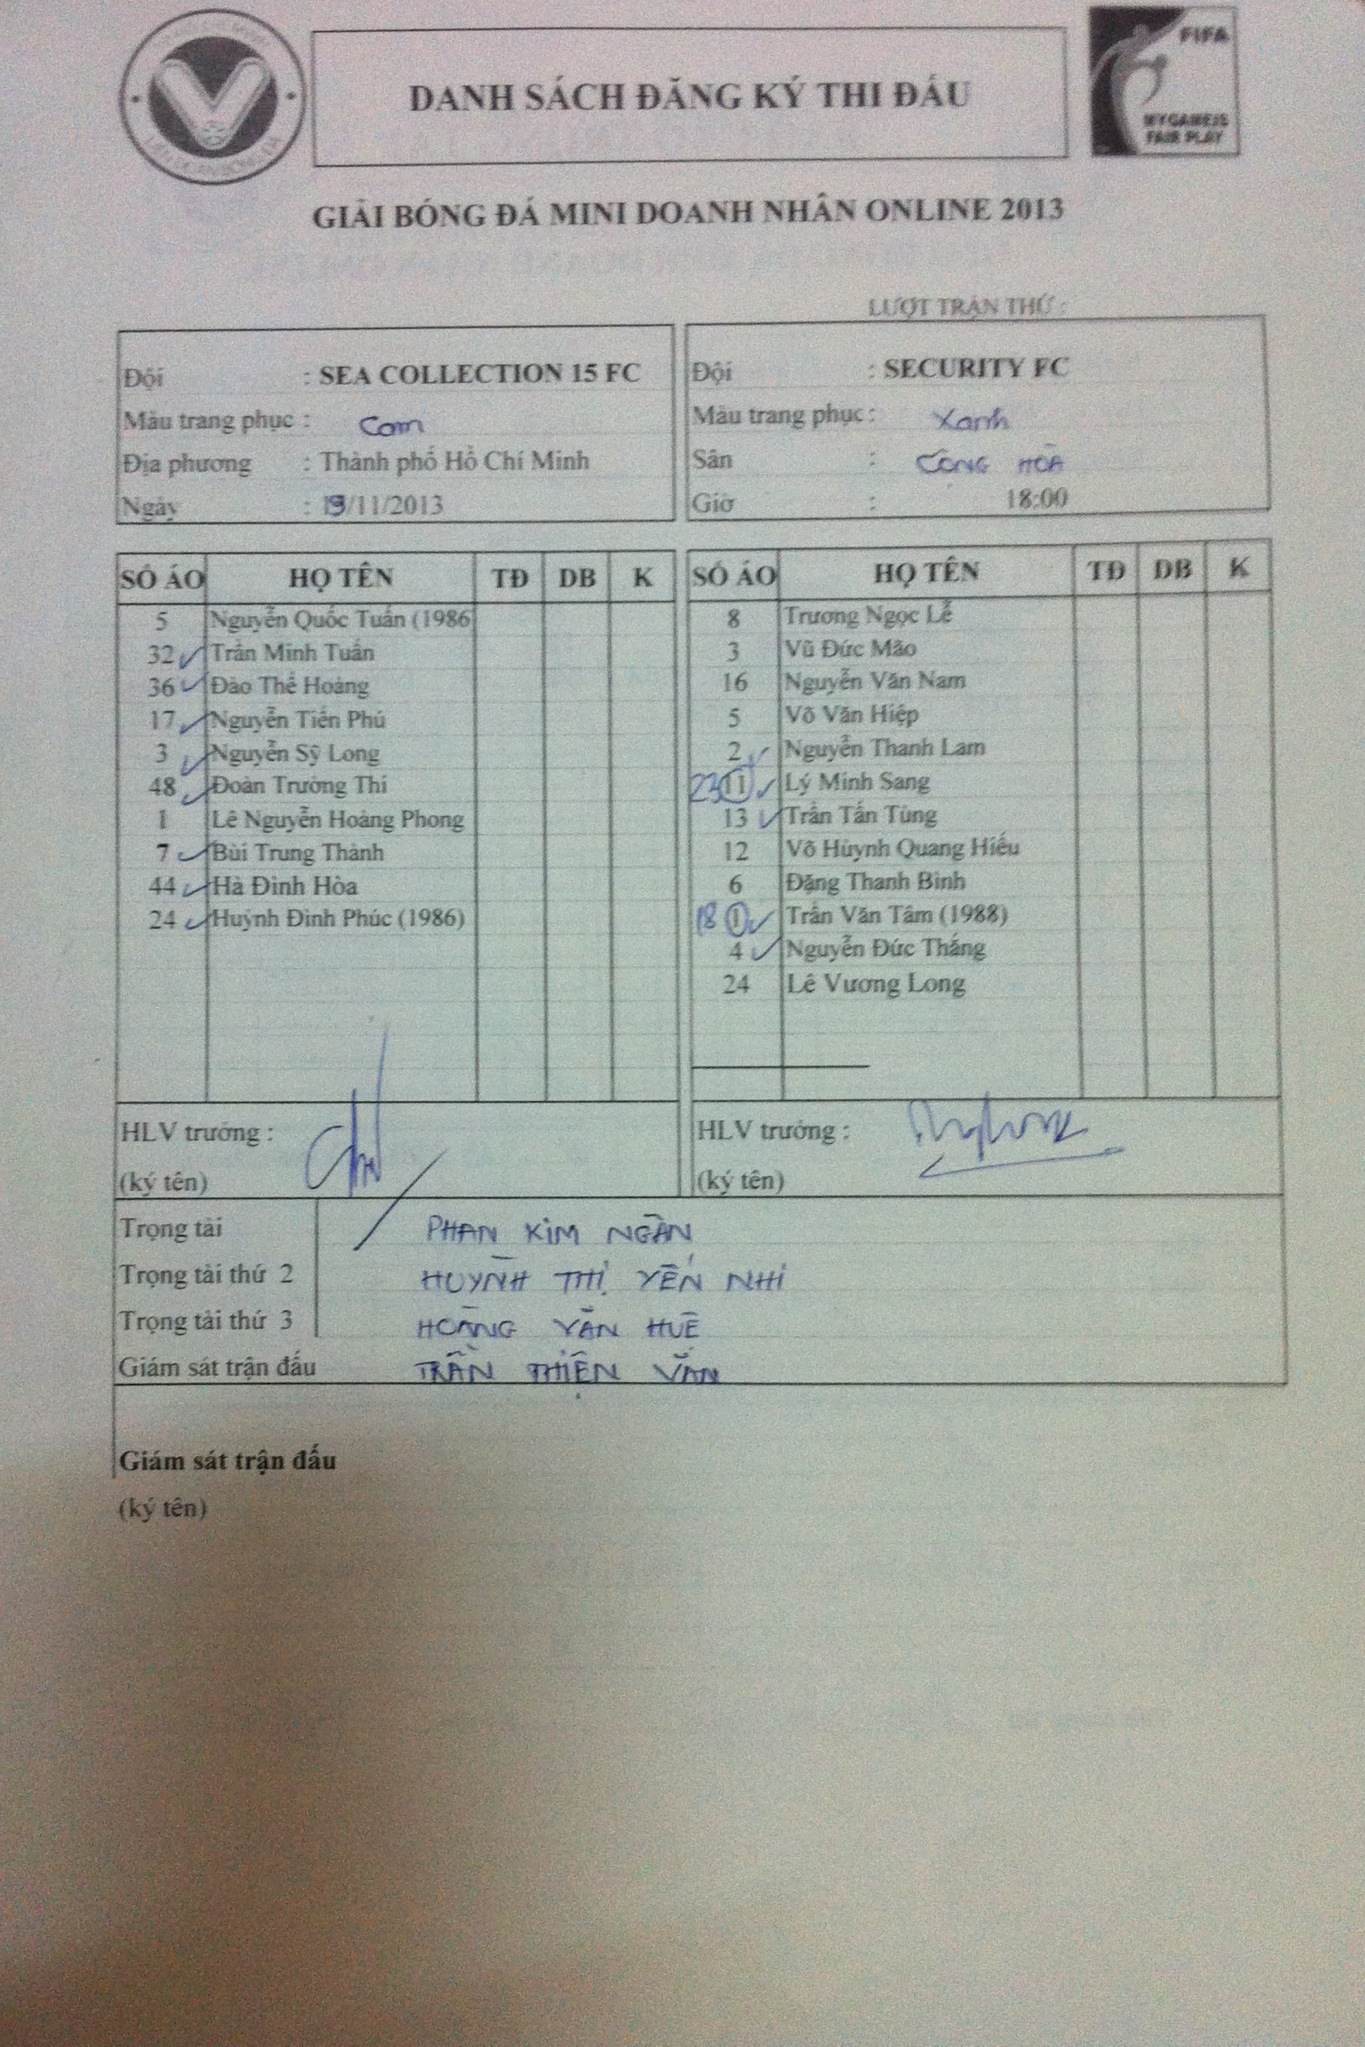 DANH SÁCH ĐĂNG KÝ THI ĐẤU
FIFA
MY GAME IS
FAIR PLAY
GIẢI BÓNG ĐÁ MINI DOANH NHÂN ONLINE 2013
LƯỢT TRẬN THỨ :
Đội : SEA COLLECTION 15 FC
Màu trang phục : Cam
Địa phương : Thành phố Hồ Chí Minh
Ngày : 19/11/2013
Đội : SECURITY FC
Màu trang phục : Xanh
Sân : CỘNG HÒA
Giờ : 18:00
SỐ ÁO HỌ TÊN TĐ DB K
5 Nguyễn Quốc Tuấn (1986
32 ✓ Trần Minh Tuấn
36 ✓ Đào Thế Hoàng
17 ✓ Nguyễn Tiến Phú
3 ✓ Nguyễn Sỹ Long
48 ✓ Đoàn Trường Thi
1 Lê Nguyễn Hoàng Phong
7 ✓ Bùi Trung Thành
44 ✓ Hà Đình Hòa
24 ✓ Huỳnh Đình Phúc (1986)
HLV trưởng :
(ký tên)
SỐ ÁO HỌ TÊN TĐ DB K
8 Trương Ngọc Lễ
3 Vũ Đức Mão
16 Nguyễn Văn Nam
5 Võ Văn Hiệp
2 ✓ Nguyễn Thanh Lam
23 11 ✓ Lý Minh Sang
13 ✓ Trần Tấn Tùng
12 Võ Hùynh Quang Hiếu
6 Đặng Thanh Bình
18 1 ✓ Trần Văn Tâm (1988)
4 ✓ Nguyễn Đức Thắng
24 Lê Vương Long
HLV trưởng :
(ký tên)
Trọng tài PHAN KIM NGÂN
Trọng tài thứ 2 HUỲNH THỊ YẾN NHI
Trọng tài thứ 3 HOÀNG VĂN HUÊ
Giám sát trận đấu TRẦN THIỆN VĂN
Giám sát trận đấu
(ký tên)